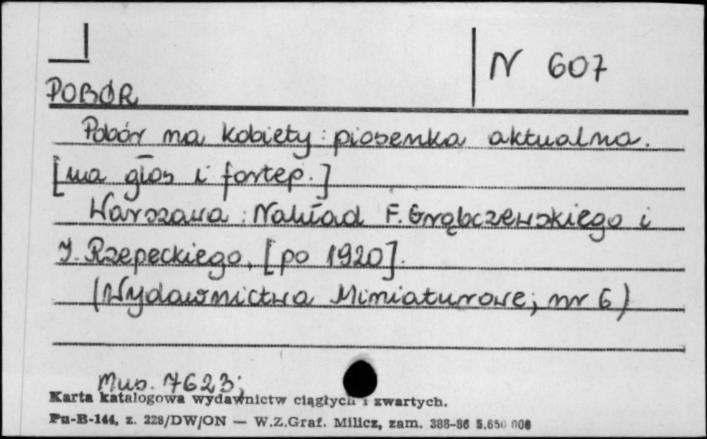 N 607
POBÓR
Pobór na kobiety : piosenka aktualna.
[na głos i fortep.]
Warszawa : Nakład F. Grąbczewskiego i
J. Rzepeckiego, [po 1920].
(Wydawnictwo Miniaturowe; nr 6)
Mus. 7623;
Karta katalogowa wydawnictw ciągłych i zwartych.
Pu-B-144, z. 228/DW/ON — W.Z.Graf. Milicz, zam. 388-86 5.650 000